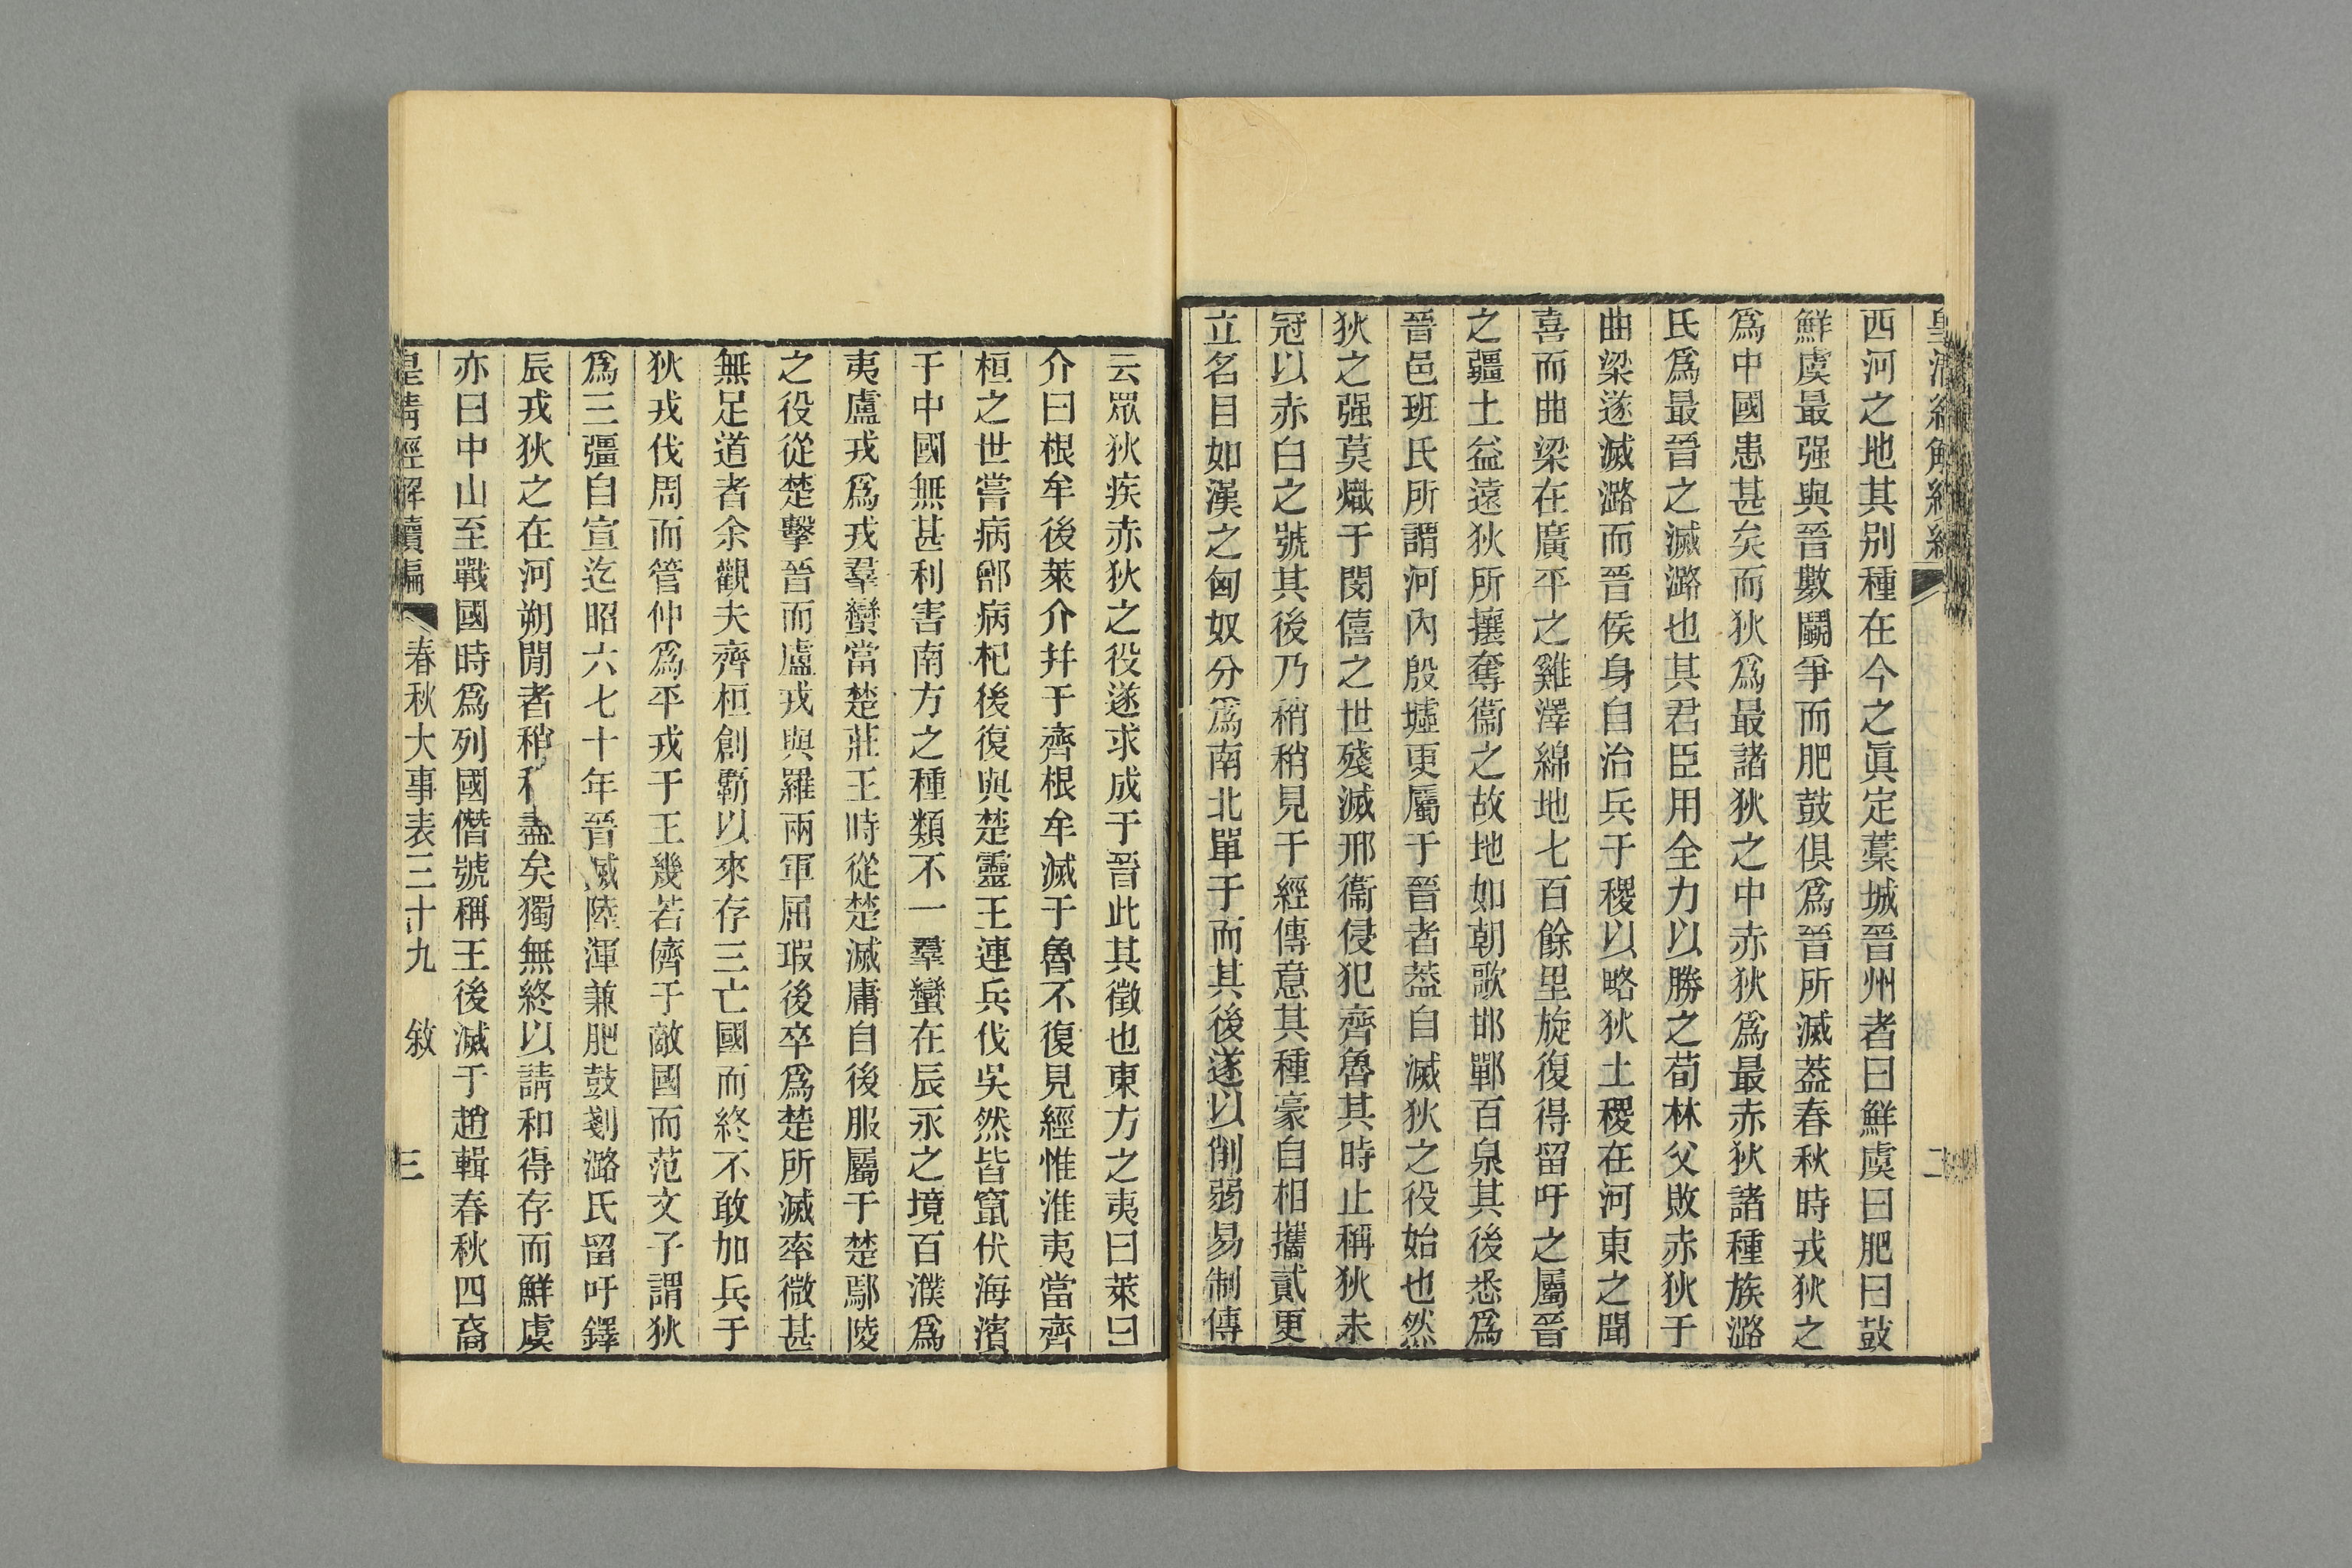 皇清經解續編
二
西河之地其别種在今之眞定藁城晉州者曰鮮虞曰肥曰鼓
鮮虞最强與晉數鬭爭而肥鼓俱爲晉所滅葢春秋時戎狄之
爲中國患甚矣而狄爲最諸狄之中赤狄爲最赤狄諸種族潞
氏爲最晉之滅潞也其君臣用全力以勝之荀林父敗赤狄于
曲梁遂滅潞而晉侯身自治兵于稷以略狄土稷在河東之聞
喜而曲梁在廣平之雞澤綿地七百餘里旋復得留吁之屬晉
之疆土益遠狄所攘奪衞之故地如朝歌邯鄲百泉其後悉爲
晉邑班氏所謂河內殷墟更屬于晉者葢自滅狄之役始也然
狄之强莫熾于閔僖之世殘滅邢衞侵犯齊魯其時止稱狄未
冠以赤白之號其後乃稍稍見于經傳意其種豪自相攜貳更
立名目如漢之匈奴分爲南北單于而其後遂以削弱易制傳
云眾狄疾赤狄之役遂求成于晉此其徵也東方之夷曰萊曰
介曰根牟後萊介幷于齊根牟滅于魯不復見經惟淮夷當齊
桓之世嘗病鄫病杞後復與楚靈王連兵伐吳然皆竄伏海濱
于中國無甚利害南方之種類不一羣蠻在辰永之境百濮爲
夷盧戎爲戎羣蠻當楚莊王時從楚滅庸自後服屬于楚鄢陵
之役從楚擊晉而盧戎與羅兩軍屈瑕後卒爲楚所滅率微甚
無足道者余觀夫齊桓創覇以來存三亡國而終不敢加兵于
狄戎伐周而管仲爲平戎于王幾若儕于敵國而范文子謂狄
爲三彊自宣迄昭六七十年晉滅陸渾兼肥鼓剗潞氏留吁鐸
辰戎狄之在河朔閒者稍稍盡矣獨無終以請和得存而鮮虞
亦曰中山至戰國時爲列國僭號稱王後滅于趙輯春秋四裔
皇清經解續編
春秋大事表三十九 敘
三